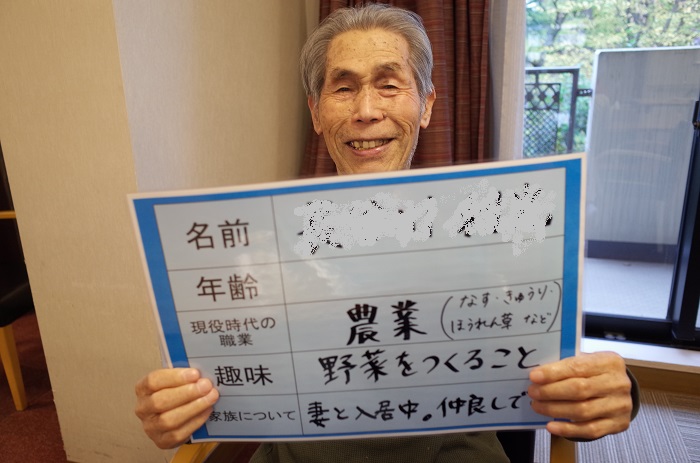 名前
年齢
現役時代の
職業
農業(なす・きゅうり・
ほうれん草 など)
趣味
野菜をつくること
家族について
妻と入居中。仲良しで